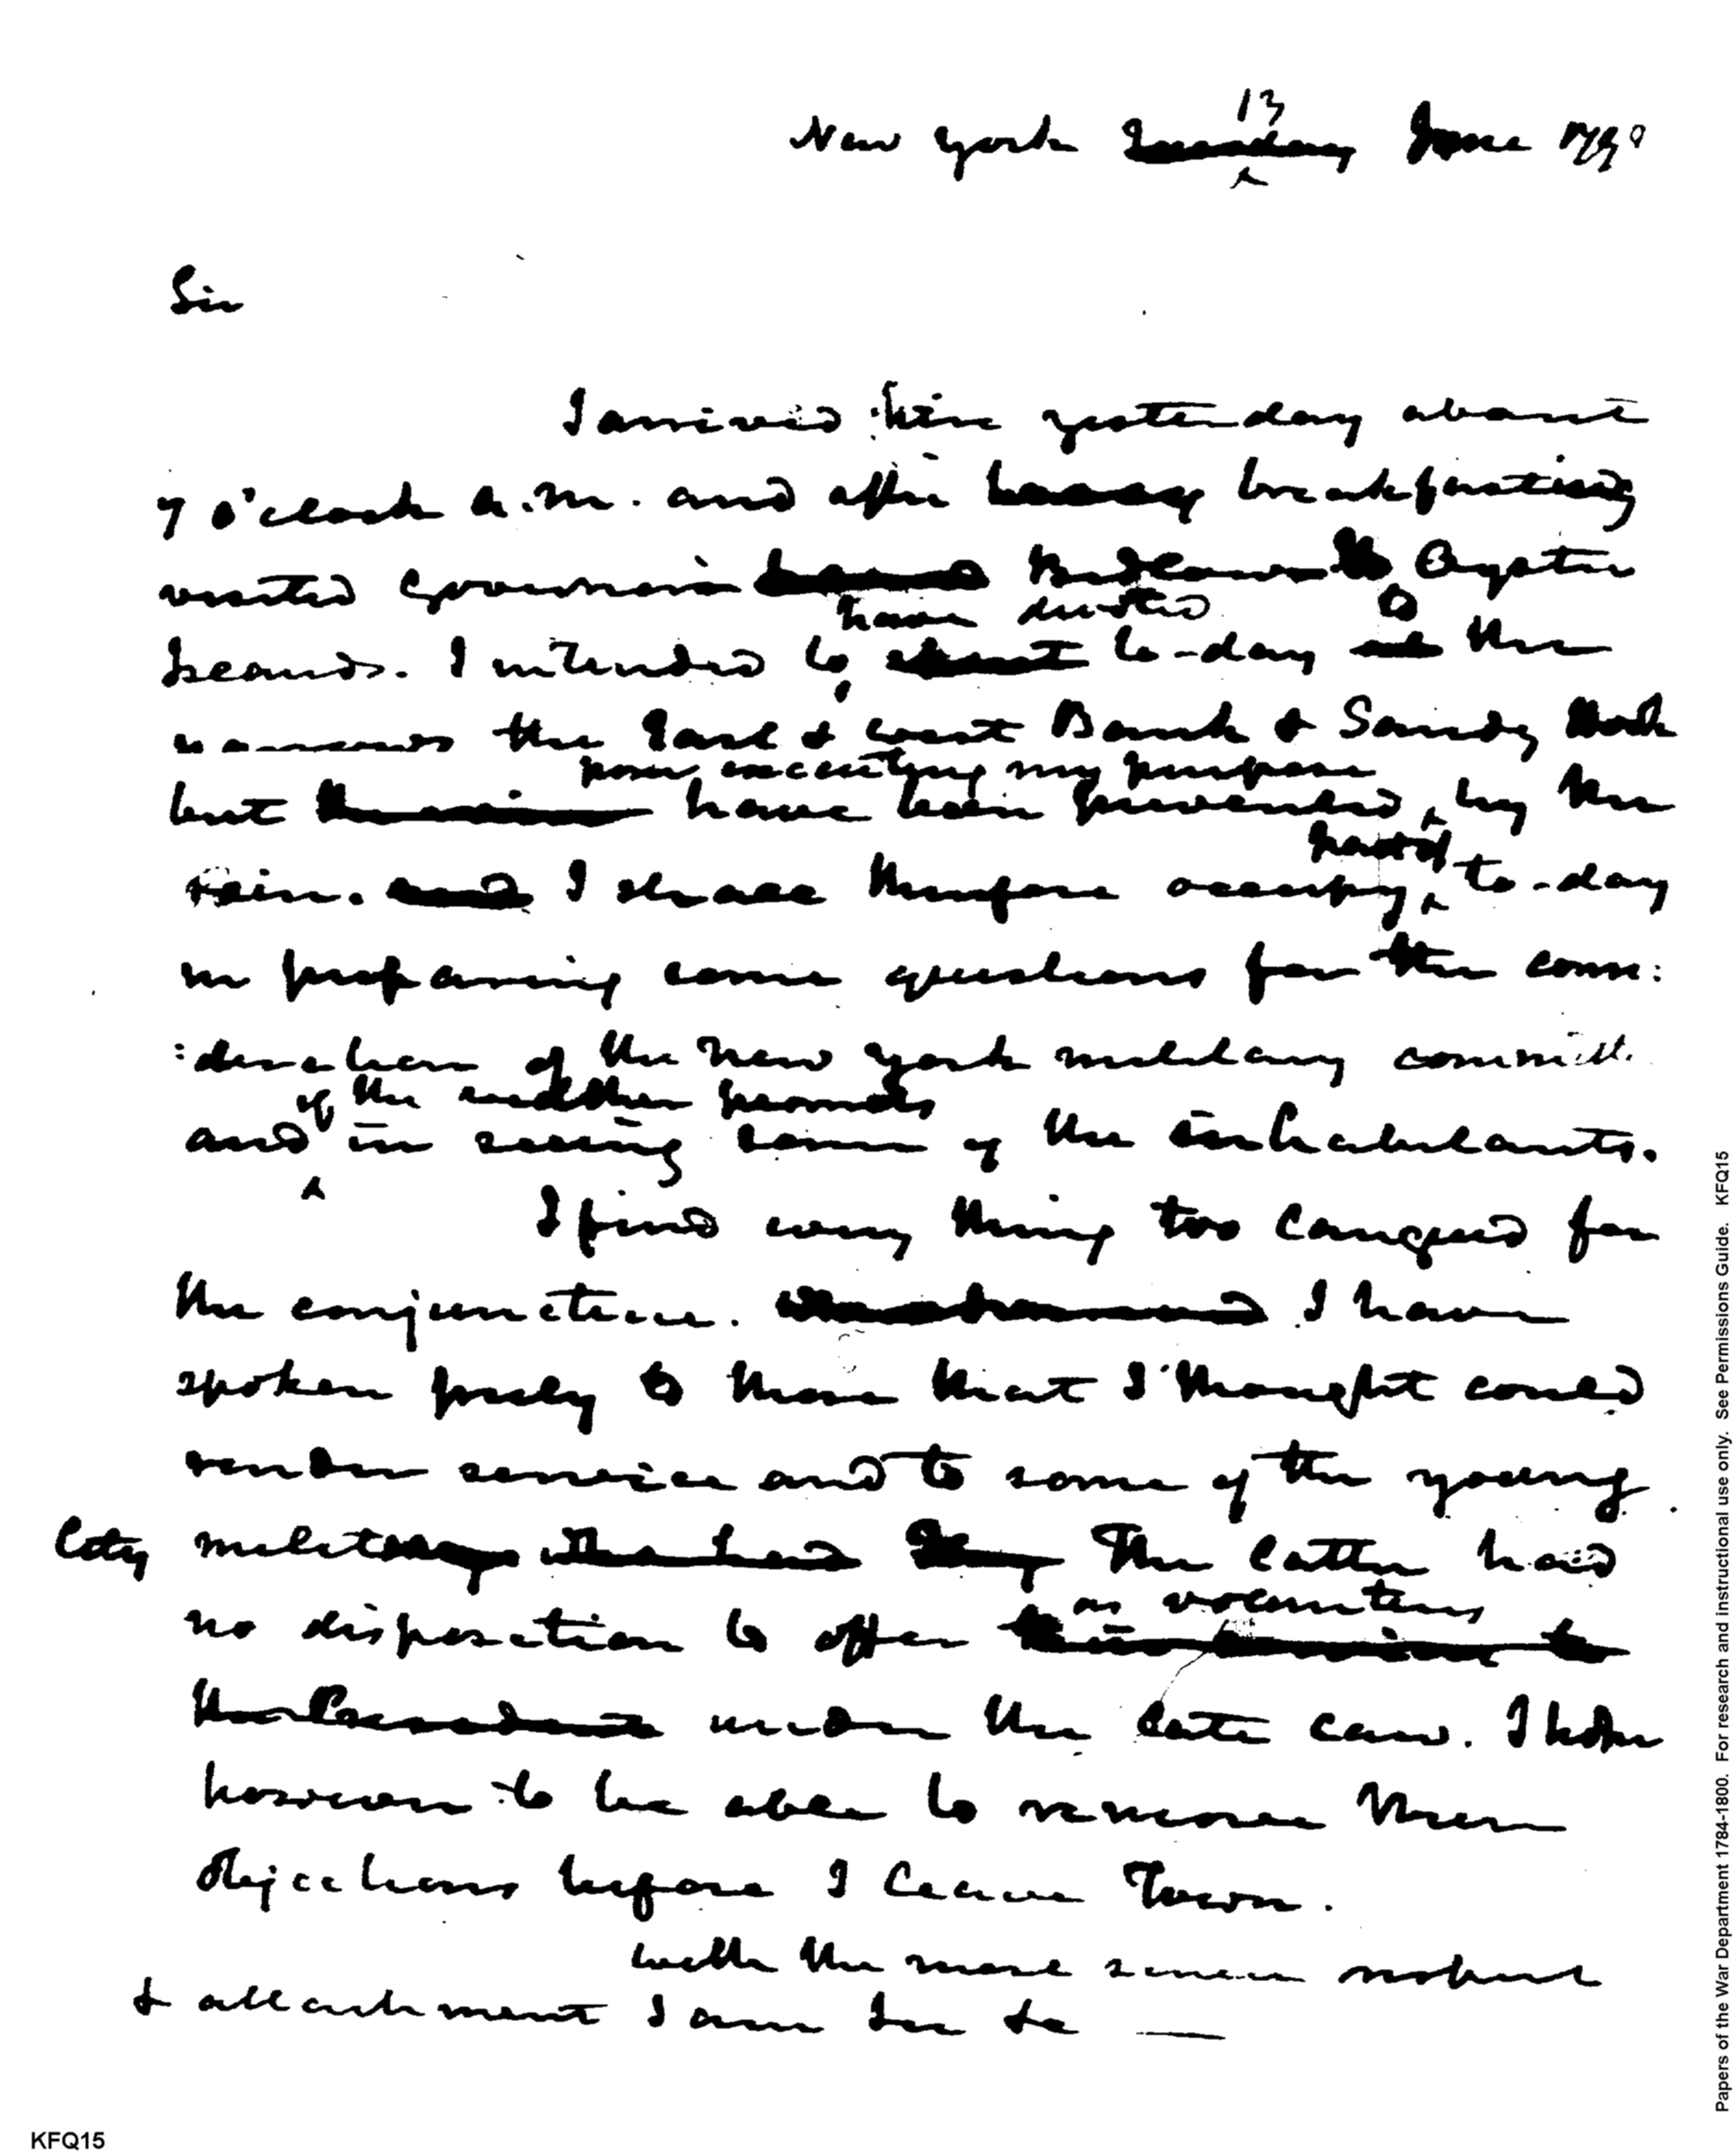 New York 13 June 1798
Sir
I arrived here yesterday about
7 o'clock A.M. and after breakfasting
visited Governors Bedlows & Oyster
Islands. I intended to have visited to-day the
narrows the East & west Bank & Sandy Hook
but have been prevented from executing my purpose by the
rain. I shall therefore occupy to-day
in preparing some questions for the consi:
:deration of the New York military committ.
and in seeing some of the inhabitants.
I find every thing too languid for
the conjuncture. I have
spoken freely to those that I thought could
render service and to some of the young
City military The latter had
no disposition to offer as volunteers
under the late law. I hope
however to be able to remove their
objections before I leave Town.
with the most sincere
& attachment I am &c &c
KFQ15
Papers of the War Department 1784-1800. For research and instructional use only. See Permissions Guide. KFQ15